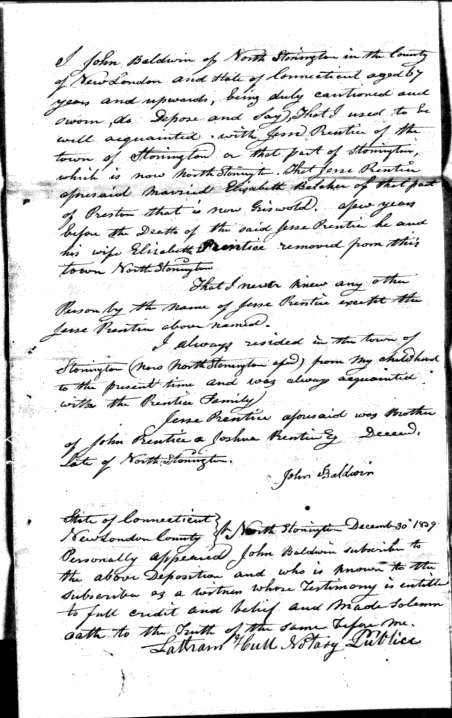 I John Baldwin of North Stonington in the County
of New London and State of Connecticut aged 67
years and upwards, being duly cautioned and
sworn, do Depose and Say, That I used to be
well acquainted with Jesse Prentice of the
town of Stonington or that part of Stonington,
which is now North Stoningtn. That Jesse Prentice
aforesaid married Elizabeth Belcher of that part
of Preston that is now Griswold. a few years
before the Death of the said Jesse Prentice he and
his wife Elizabeth Prentice removed from this
town North Stonington
That I never knew any other
Person by the name of Jesse Prentice except the
Jesse Prentice above named.
I always resided in the town of
Stonington (now North Stonington afsd) from my childhood
to the present time and was always acquainted
with the Prentice Family
Jesse Prentice aforesaid was Brother
of John Prentice & Joshua Prentice Decead.
Late of North Stonington.
John Baldwin
State of Connecticut
New London County } North Stonington Decemb 30th 1839
Personally appeared John Baldwin subscribe to
the above Deposition and who is known to the
subscriber as a witness whose Testimony is entitle
to full credit and belief and made Solemn
oath to the Truth of the same before me.
Latham Hull Notary Public